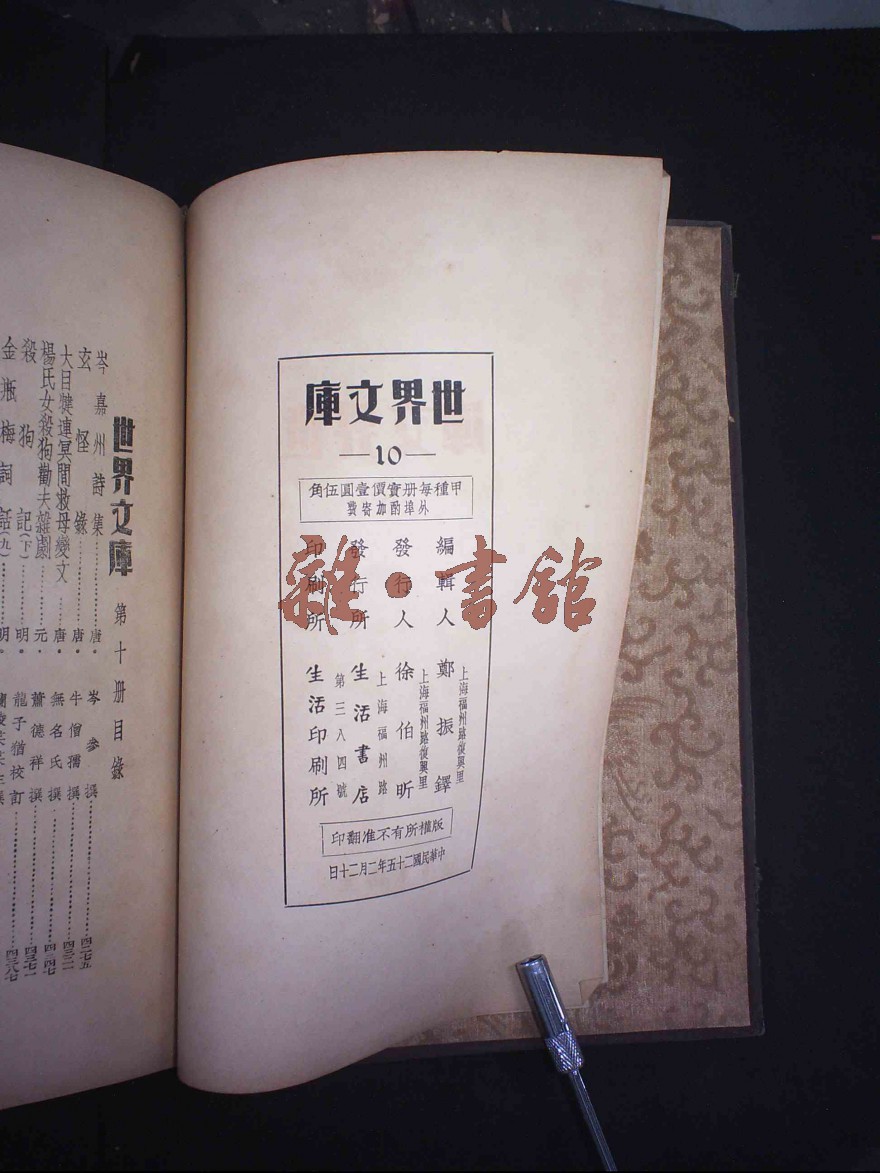 世界文庫
—10—
甲種每册實價壹圓伍角
外埠酌加寄費
編輯人 鄭振鐸
上海福州路復興里
發行人 徐伯昕
上海福州路復興里
發行所 生活書店
上海福州路
第三八四號
印刷所 生活印刷所
版權所有不准翻印
中華民國二十五年二月二十日
雜·書館
世界文庫 第十册目錄
岑嘉州詩集 唐·岑參撰 四二七五
玄怪錄 唐·牛僧孺撰 四三二一
大目犍連冥間救母變文 唐·無名氏撰 四三四七
楊氏女殺狗勸夫雜劇 元·蕭德祥撰 四三七一
殺狗記(下) 明·龍子猶校訂 四三八七
金瓶梅詞話(九) 明·